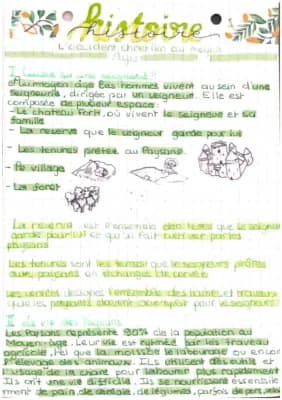 histoire
L'occident chrétien au Moyen
Âge
I
Au moyen âge les hommes vivent au sein d'une
seigneurie, dirigée par un seigneur. Elle est
composée de plusieur espace:
- Le chateau fort, où vivent le seigneur et sa
famille
- La reserve que le seigneur garde pour lui
- Les tenures prêtée au Paysans.
- Le village
- La foret
La reserve est l'ensemble des terres que le seigneur
garde pour lui et qu'il fait cultiver par les
paysans
Les tenures sont les terres que le seigneurs prêtes
aux paysans en échanges de corvée
l'ensemble des
que les paysans doivent
II La vie des Paysans
Les Paysans représente 90% de la population au
Moyen-Âge. Leur vie est rythmée par les travaux
agricole, tel que la moisson le labourage ou encore
l'élevage des animaux. Ils utilisent des outils et
l'usage de la charrue pour labourer plus rapidement
Ils ont une vie difficile. Ils se nourrissent essentielle-
ment de pain, de céréale, de légumes, parfois de